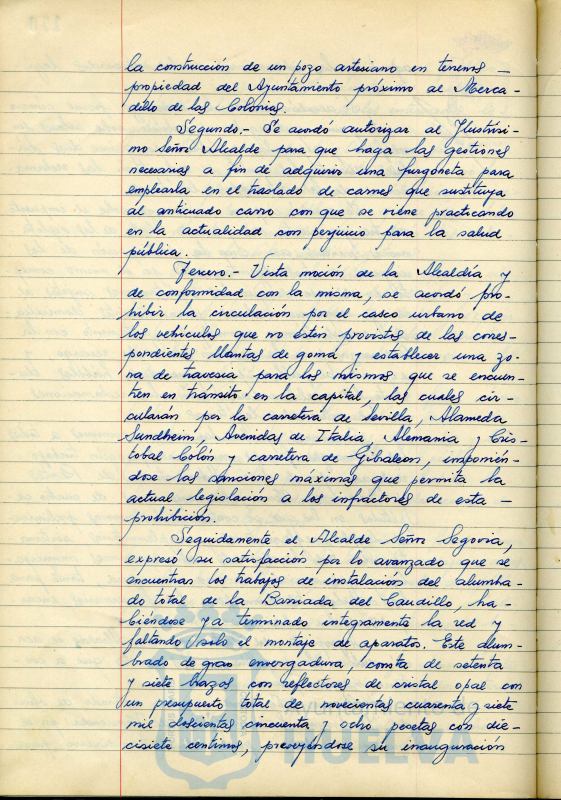 la construcción de un pozo artesiano en terrenos —
propiedad del Ayuntamiento próximo al Merca-
dillo de las Colonias.
Segundo.- Se acordó autorizar al Ilustrísi-
mo Señor Alcalde para que haga las gestiones
necesarias a fin de adquirir una furgoneta para
emplearla en el traslado de carnes que sustituya
al anticuado carro con que se viene practicando
en la actualidad con perjuicio para la salud
pública.
Tercero.- Vista moción de la Alcaldía y
de conformidad con la misma, se acordó pro-
hibir la circulación por el casco urbano de
los vehículos que no estén provistos de las corres-
pondientes llantas de goma y establecer una zo-
na de travesía para los mismos que se encuen-
tren en tránsito en la capital, las cuales cir-
cularán por la carretera de Sevilla, Alameda
Sundheim, Avenidas de Italia, Alemania y Cris-
tobal Colón y carretera de Gibraleon, imponién-
dose las sanciones máximas que permita la
actual legislación a los infractores de esta —
prohibición.
Seguidamente el Alcalde Señor Segovia,
expresó su satisfacción por lo avanzado que se
encuentran los trabajos de instalación del alumbra-
do total de la Barriada del Caudillo, ha-
biéndose ya terminado integramente la red y
faltando solo el montaje de aparatos. Este alum-
brado de gran envergadura, consta de setenta
y siete brazos con reflectores de cristal opal con
un presupuesto total de novecientas cuarenta y siete
mil doscientas cincuenta y ocho pesetas con die-
cisiete centimos, preveyéndose su inauguración
HUELVA